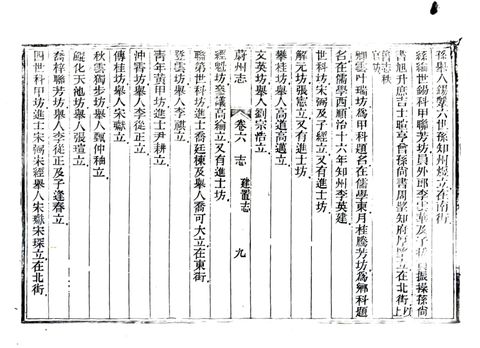 孫舉人錫齡六世孫知州煜立在南街
經綸世錫科甲聯芳坊員外郎李
書旭升庶吉士暄亭曾孫尚書周知府厚立在北街
舊志秩官坊
卿雲叶瑞坊爲甲科題名在儒學東月桂騰芳坊爲鄉科題
名在儒學西順治十六年知州李英建
世科坊宋弼及子經立又有進士坊
解元坊張憲立又有進士坊
攀桂坊舉人高道高選立
文英坊舉人劉宗浩立
蔚州志 卷六 志 建置志 九
經魁坊參議高綸立又有進士坊
聯第世科坊進士喬廷棟及舉人喬可大立在東街
登雲坊舉人李麒立
青年黃甲坊進士尹耕立
沖霄坊舉人李從正立
傳桂坊舉人宋嶽立
秋雲獨步坊舉人甄仲秞立
龍化天池坊舉人張瑄立
喬梓聯芳坊舉人李從正及子逢春立
四世科甲坊進士宋弼宋經舉人宋嶽宋琛立在北街